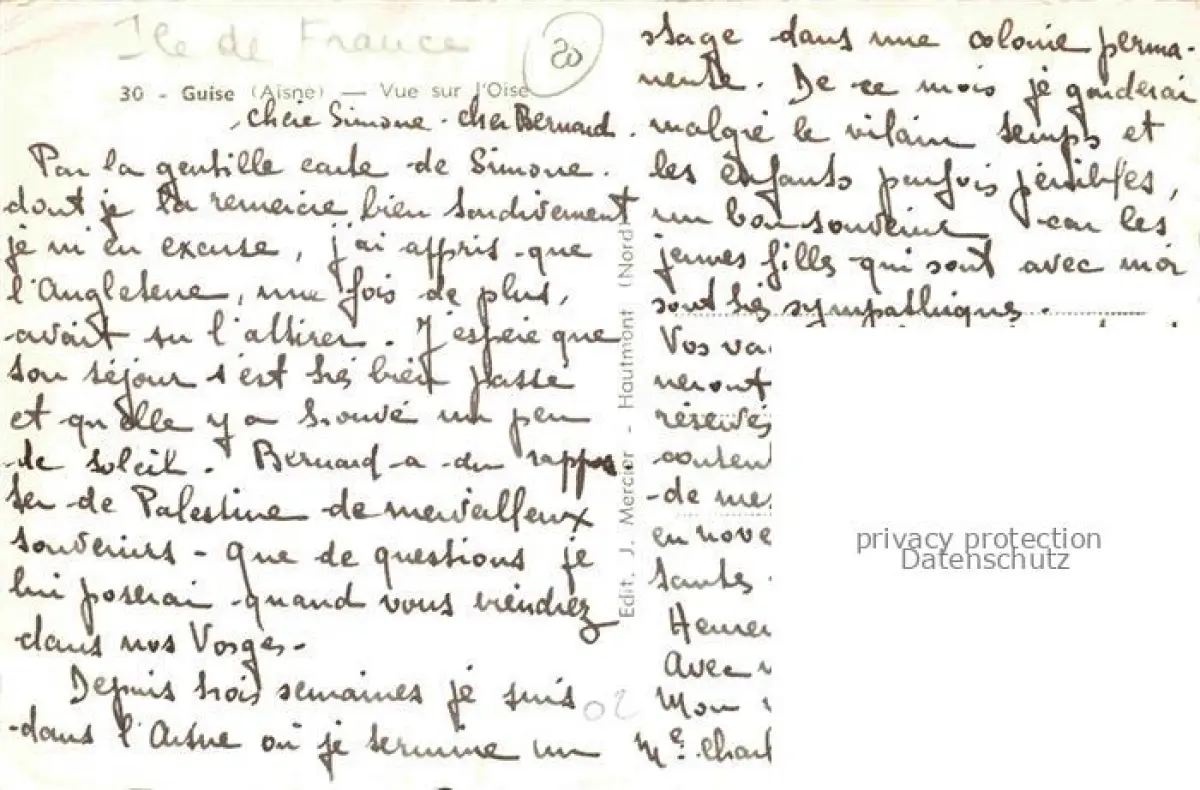 Ile de France
20
30 - Guise (Aisne) — Vue sur l'Oise
chère Simone - cher Bernard.
Par la gentille carte de Simone.
dont je la remercie bien tardivement
je m'en excuse, j'ai appris que
l'Angleterre, une fois de plus,
avait su l'attirer. J'espère que
son séjour s'est très bien passé
et qu'elle y a trouvé un peu
de soleil. Bernard a du rappor
ter de Palestine de merveilleux
souvenirs - Que de questions je
lui poserai quand vous viendrez
dans nos Vosges -
Depuis trois semaines je suis
dans l'Aisne où je termine un
02
Edit. J. Mercier - Hautmont (Nord)
stage dans une colonie perma-
nente. De ce mois je garderai
malgré le vilain temps et
les enfants parfois pénibles,
un bon souvenir car les
jeunes filles qui sont avec moi
sont très sympathiques.
Vos va
neront
réservés
conten
de me
en nove
santes
Heureu
Avec
Mon
Me. Charl
privacy protection
Datenschutz